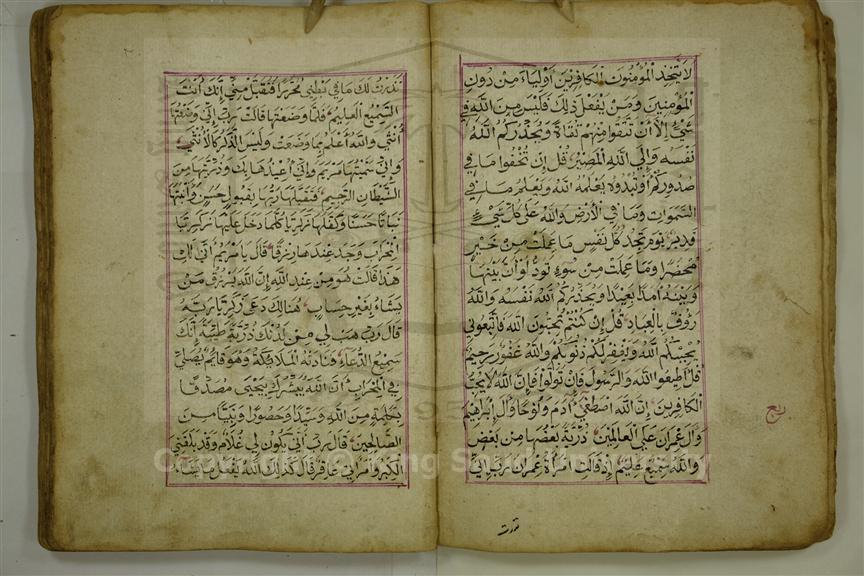 لا يتخذ المؤمنون الكافرين اولياء من دون
المؤمنين ومن يفعل ذلك فليس من الله في
شيء الا ان تتقوا منهم تقاة ويحذركم الله
نفسه والى الله المصير قل ان تخفوا ما في
صدوركم او تبدوه يعلمه الله ويعلم ما في
السموات وما في الارض والله على كل شيء
قدير يوم تجد كل نفس ما عملت من خير
محضرا وما عملت من سوء تود لو ان بينها
وبينه امدا بعيدا ويحذركم الله نفسه والله
رؤف بالعباد قل ان كنتم تحبون الله فاتبعوني
يحببكم الله ويغفر لكم ذنوبكم والله غفور رحيم
قل اطيعوا الله والرسول فان تولوا فان الله لا يحب
الكافرين ان الله اصطفى ادم ونوحا وال ابراهيم
وال عمران على العالمين ذرية بعضها من بعض
والله سميع عليم اذ قالت امرأة عمران رب اني
نذرت
ربع
نذرت لك ما في بطني محررا فتقبل مني انك انت
السميع العليم فلما وضعتها قالت رب اني وضعتها
انثى والله اعلم بما وضعت وليس الذكر كالانثى
واني سميتها مريم واني اعيذها بك وذريتها من
الشيطان الرجيم فتقبلها ربها بقبول حسن وانبتها
نباتا حسنا وكفلها زكريا كلما دخل عليها زكريا
المحراب وجد عندها رزقا قال يا مريم انى لك
هذا قالت هو من عند الله ان الله يرزق من
يشاء بغير حساب هنالك دعى زكريا ربه
قال رب هب لي من لدنك ذرية طيبة انك
سميع الدعاء فنادته الملائكة وهو قائم يصلي
في المحراب ان الله يبشرك بيحيى مصدقا
بكلمة من الله وسيدا وحصورا ونبيا من
الصالحين قال رب انى يكون لي غلام وقد بلغني
الكبر وامرأتي عاقر قال كذلك الله يفعل ما يشاء